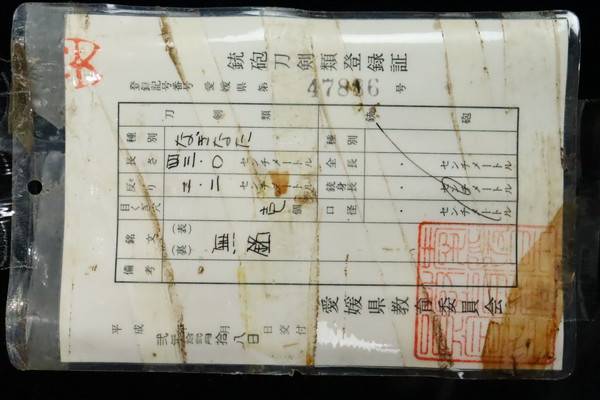 銃砲刀剣類登録証
登録記号番号 愛媛県 第 47886 号
刀剣類 銃砲
種別 なぎなた 種別
長さ 四三.〇 センチメートル 全長 . センチメートル
反り 一.二 センチメートル 銃身長 . センチメートル
目くぎ穴 壱 個 口径 . センチメートル
銘文 (表) (裏) 無銘
備考
平成 弐年 拾月 拾八日 日交付
愛媛県教育委員会